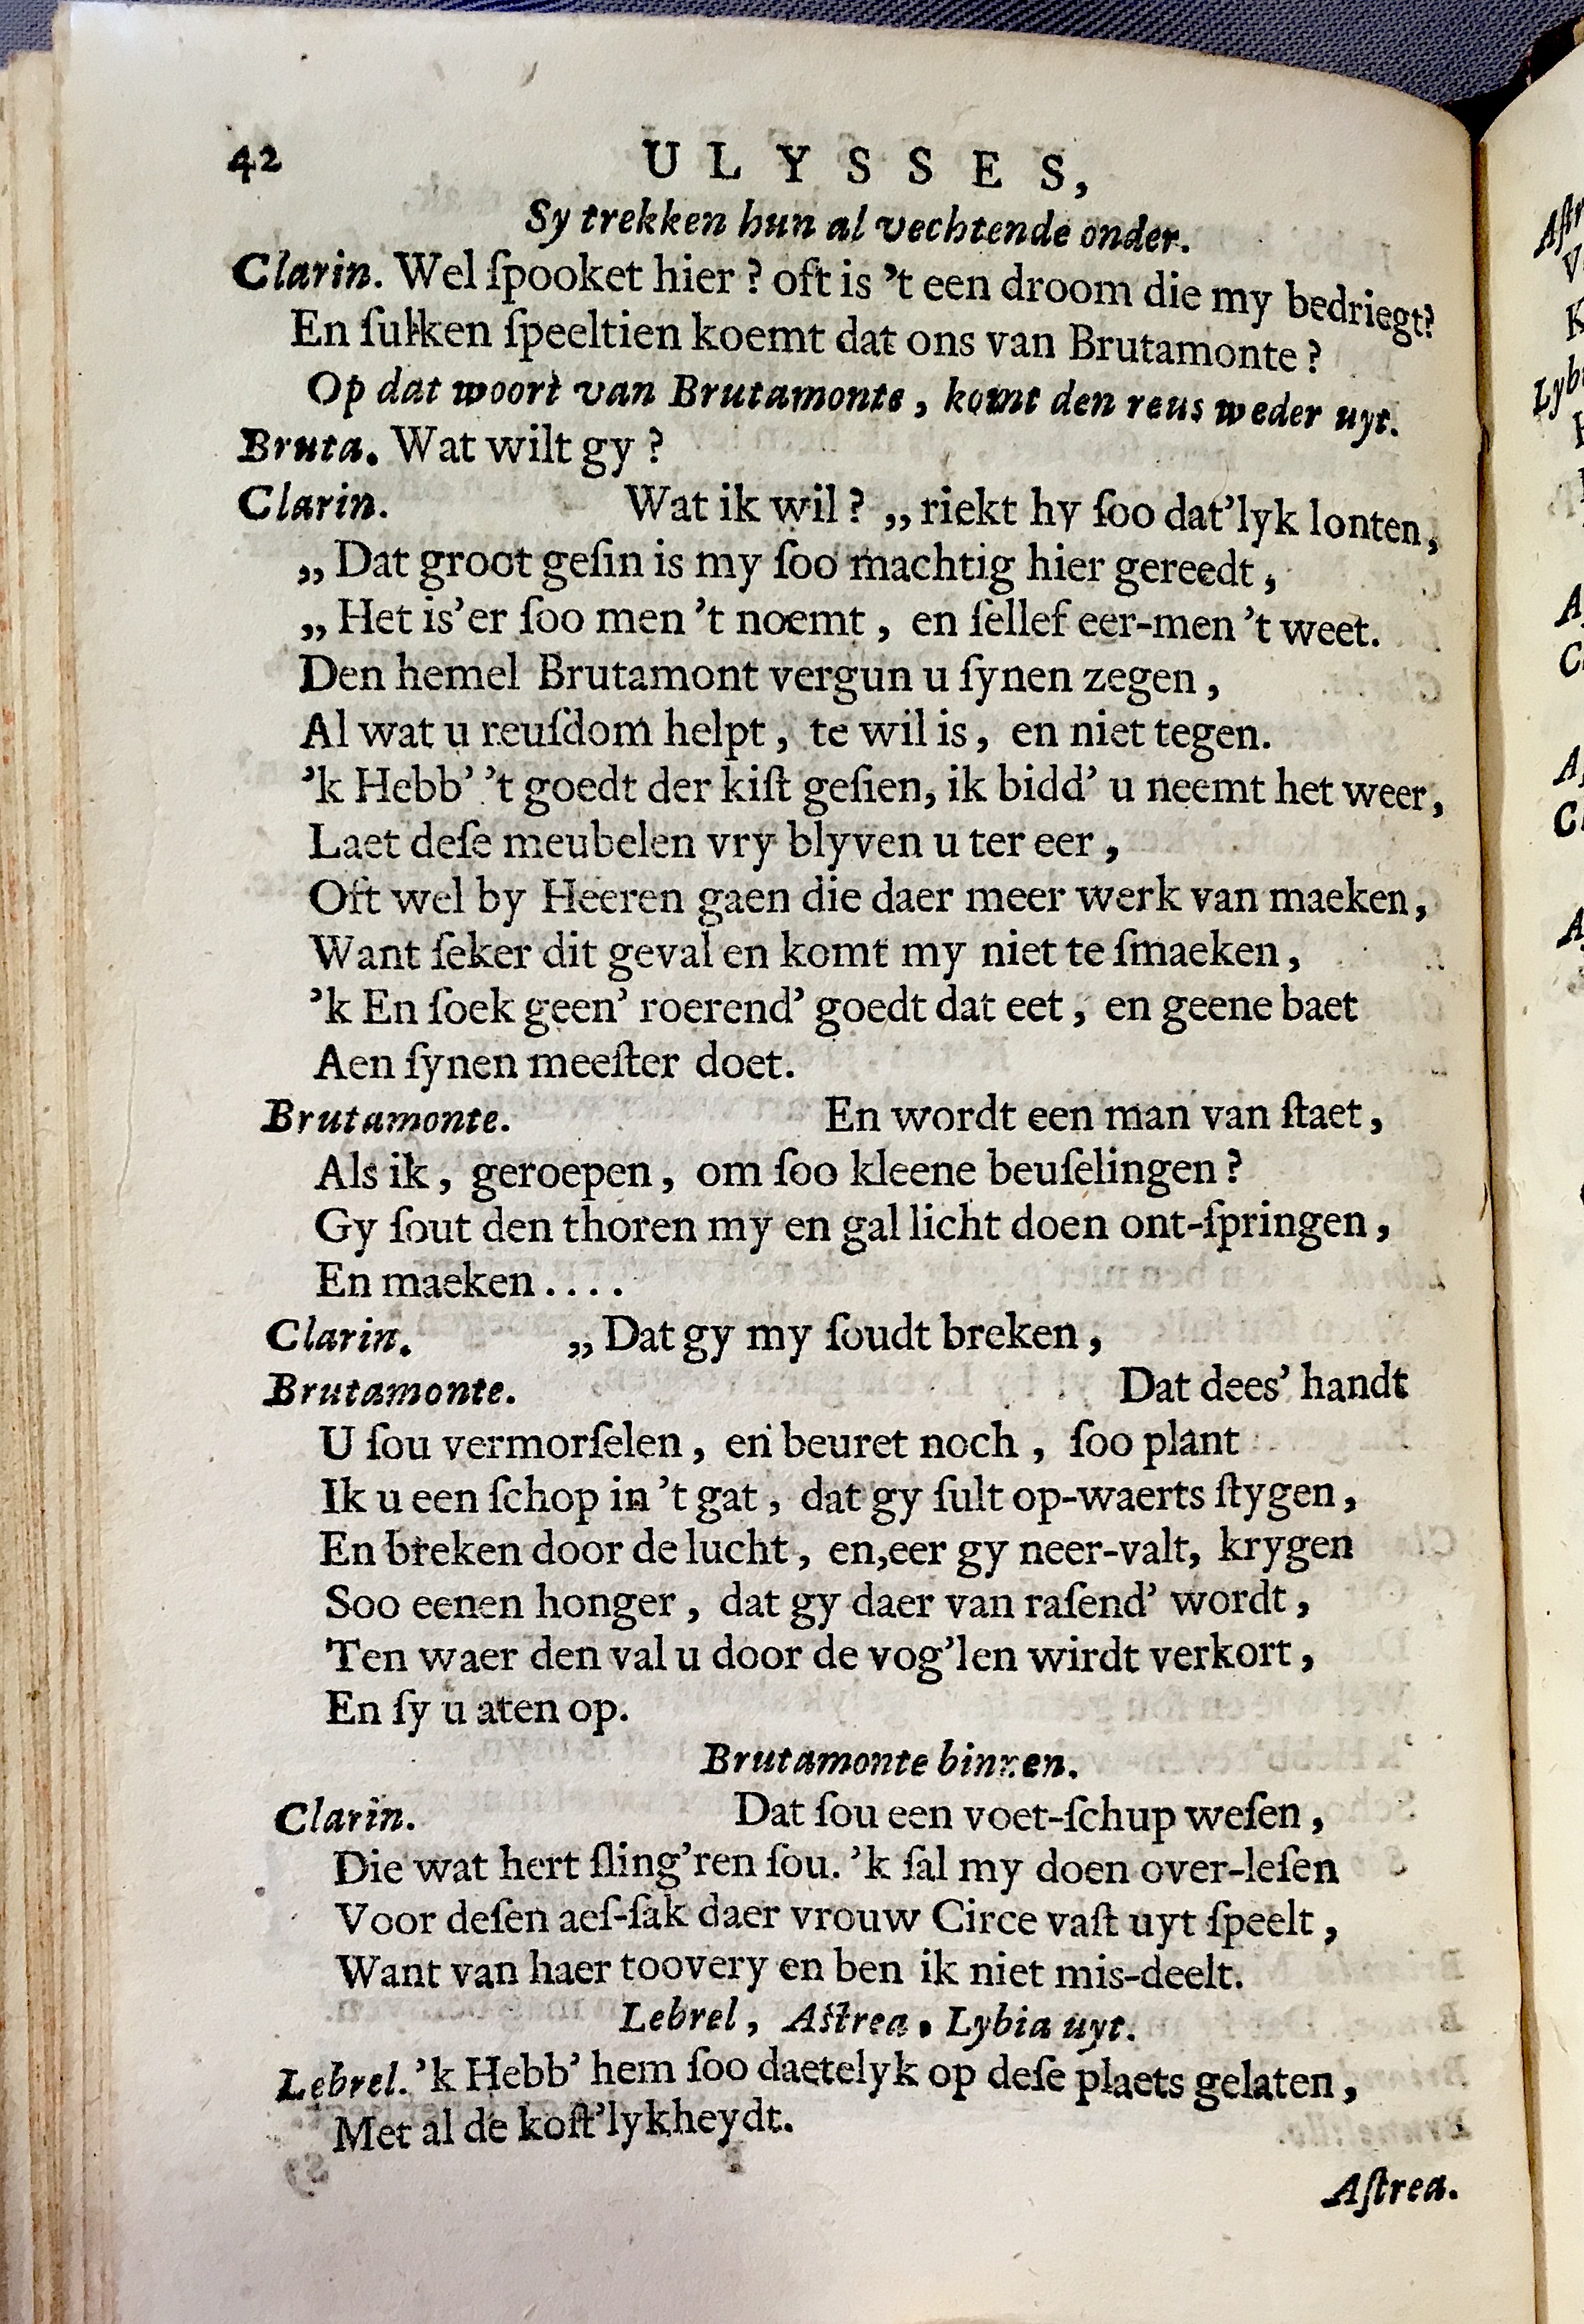 42 ULYSSES,
Sy trekken hun al vechtende onder.
Clarin. Wel ſpooket hier ? oft is ’t een droom die my bedriegt?
En ſulken ſpeeltien koemt dat ons van Brutamonte ?
Op dat woort van Brutamonte , komt den reus weder uyt.
Bruta. Wat wilt gy ?
Clarin. Wat ik wil ? ,, riekt hy ſoo dat’lyk lonten,
,, Dat groot geſin is my ſoo machtig hier gereedt ,
,, Het is’er ſoo men ’t noemt , en ſellef eer-men ’t weet.
Den hemel Brutamont vergun u ſynen zegen ,
Al wat u reuſdom helpt , te wil is , en niet tegen.
’k Hebb’ ’t goedt der kiſt geſien, ik bidd’ u neemt het weer,
Laet deſe meubelen vry blyven u ter eer ,
Oft wel by Heeren gaen die daer meer werk van maeken,
Want ſeker dit geval en komt my niet te ſmaeken ,
’k En ſoek geen’ roerend’ goedt dat eet , en geene baet
Aen ſynen meeſter doet.
Brutamonte. En wordt een man van ſtaet ,
Als ik , geroepen , om ſoo kleene beuſelingen ?
Gy ſout den thoren my en gal licht doen ont-ſpringen ,
En maeken . . . .
Clarin. ,, Dat gy my ſoudt breken ,
Brutamonte. Dat dees’ handt
U ſou vermorſelen , en beuret noch , ſoo plant
Ik u een ſchop in ’t gat , dat gy ſult op-waerts ſtygen ,
En breken door de lucht , en,eer gy neer-valt, krygen
Soo eenen honger , dat gy daer van raſend’ wordt ,
Ten waer den val u door de vog’len wirdt verkort ,
En ſy u aten op.
Brutamonte binnen.
Clarin. Dat ſou een voet-ſchup weſen ,
Die wat hert ſling’ren ſou. ’k ſal my doen over-leſen
Voor deſen aeſ-ſak daer vrouw Circe vaſt uyt ſpeelt ,
Want van haer toovery en ben ik niet mis-deelt.
Lebrel , Aſtrea , Lybia uyt.
Lebrel. ’k Hebb’ hem ſoo daetelyk op deſe plaets gelaten ,
Met al de koſt’lykheydt.
Aſtrea.